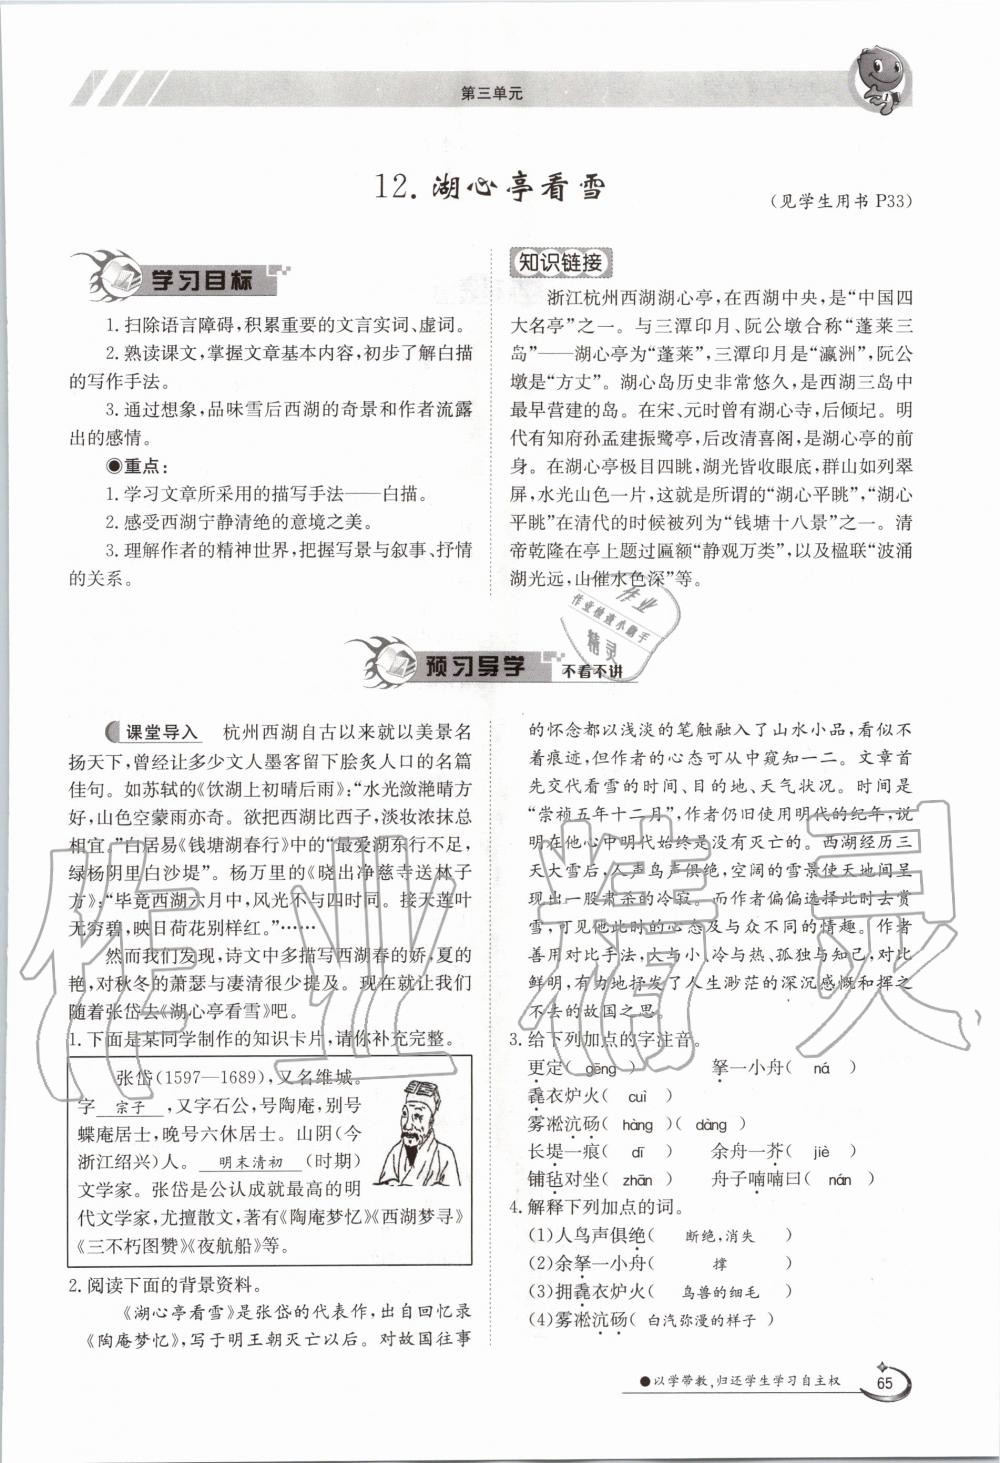 第三单元
12. 湖心亭看雪
(见学生用书 P33)
学习目标
1. 扫除语言障碍,积累重要的文言实词、虚词。
2. 熟读课文,掌握文章基本内容,初步了解白描
的写作手法。
3. 通过想象,品味雪后西湖的奇景和作者流露
出的感情。
●重点:
1. 学习文章所采用的描写手法——白描。
2. 感受西湖宁静清绝的意境之美。
3. 理解作者的精神世界,把握写景与叙事、抒情
的关系。
知识链接
浙江杭州西湖湖心亭,在西湖中央,是“中国四
大名亭”之一。与三潭印月、阮公墩合称“蓬莱三
岛”——湖心亭为“蓬莱”,三潭印月是“瀛洲”,阮公
墩是“方丈”。湖心岛历史非常悠久,是西湖三岛中
最早营建的岛。在宋、元时曾有湖心寺,后倾圮。明
代有知府孙孟建振鹭亭,后改清喜阁,是湖心亭的前
身。在湖心亭极目四眺,湖光皆收眼底,群山如列翠
屏,水光山色一片,这就是所谓的“湖心平眺”,“湖心
平眺”在清代的时候被列为“钱塘十八景”之一。清
帝乾隆在亭上题过匾额“静观万类”,以及楹联“波涌
湖光远,山催水色深”等。
作业
作业检查小助手
精灵
预习导学
不看不讲
课堂导入 杭州西湖自古以来就以美景名
扬天下,曾经让多少文人墨客留下脍炙人口的名篇
佳句。如苏轼的《饮湖上初晴后雨》:“水光潋滟晴方
好,山色空蒙雨亦奇。欲把西湖比西子,淡妆浓抹总
相宜。”白居易《钱塘湖春行》中的“最爱湖东行不足,
绿杨阴里白沙堤”。杨万里的《晓出净慈寺送林子
方》:“毕竟西湖六月中,风光不与四时同。接天莲叶
无穷碧,映日荷花别样红。”……
然而我们发现,诗文中多描写西湖春的娇,夏的
艳,对秋冬的萧瑟与凄清很少提及。现在就让我们
随着张岱去《湖心亭看雪》吧。
1. 下面是某同学制作的知识卡片,请你补充完整。
张岱(1597—1689),又名维城。
字 宗子 ,又字石公,号陶庵,别号
蝶庵居士,晚号六休居士。山阴(今
浙江绍兴)人。 明末清初 (时期)
文学家。张岱是公认成就最高的明
代文学家,尤擅散文,著有《陶庵梦忆》《西湖梦寻》
《三不朽图赞》《夜航船》等。
2. 阅读下面的背景资料。
《湖心亭看雪》是张岱的代表作,出自回忆录
《陶庵梦忆》,写于明王朝灭亡以后。对故国往事
的怀念都以浅淡的笔触融入了山水小品,看似不
着痕迹,但作者的心态可从中窥知一二。文章首
先交代看雪的时间、目的地、天气状况。时间是
“崇祯五年十二月”,作者仍旧使用明代的纪年,说
明在他心中明代始终是没有灭亡的。西湖经历三
天大雪后,人声鸟声俱绝,空阔的雪景使天地间生
出一股肃杀的冷寂。而作者偏偏选择此时去赏
雪,可见他此时的心态及与众不同的情趣。作者
善用对比手法,大与小、冷与热、孤独与知己,对比
鲜明,有力地抒发了人生渺茫的深沉感慨和挥之
不去的故国之思。
3. 给下列加点的字注音。
更定( gēng ) 拏一小舟( ná )
毳衣炉火( cuì )
雾凇沆砀( hàng )( dàng )
长堤一痕( dī ) 余舟一芥( jiè )
铺毡对坐( zhān ) 舟子喃喃曰( nán )
4. 解释下列加点的词。
(1)人鸟声俱绝( 断绝,消失 )
(2)余拏一小舟( 撑 )
(3)拥毳衣炉火( 鸟兽的细毛 )
(4)雾凇沆砀( 白汽弥漫的样子 )
作业精灵
●以学带教,归还学生学习自主权
65